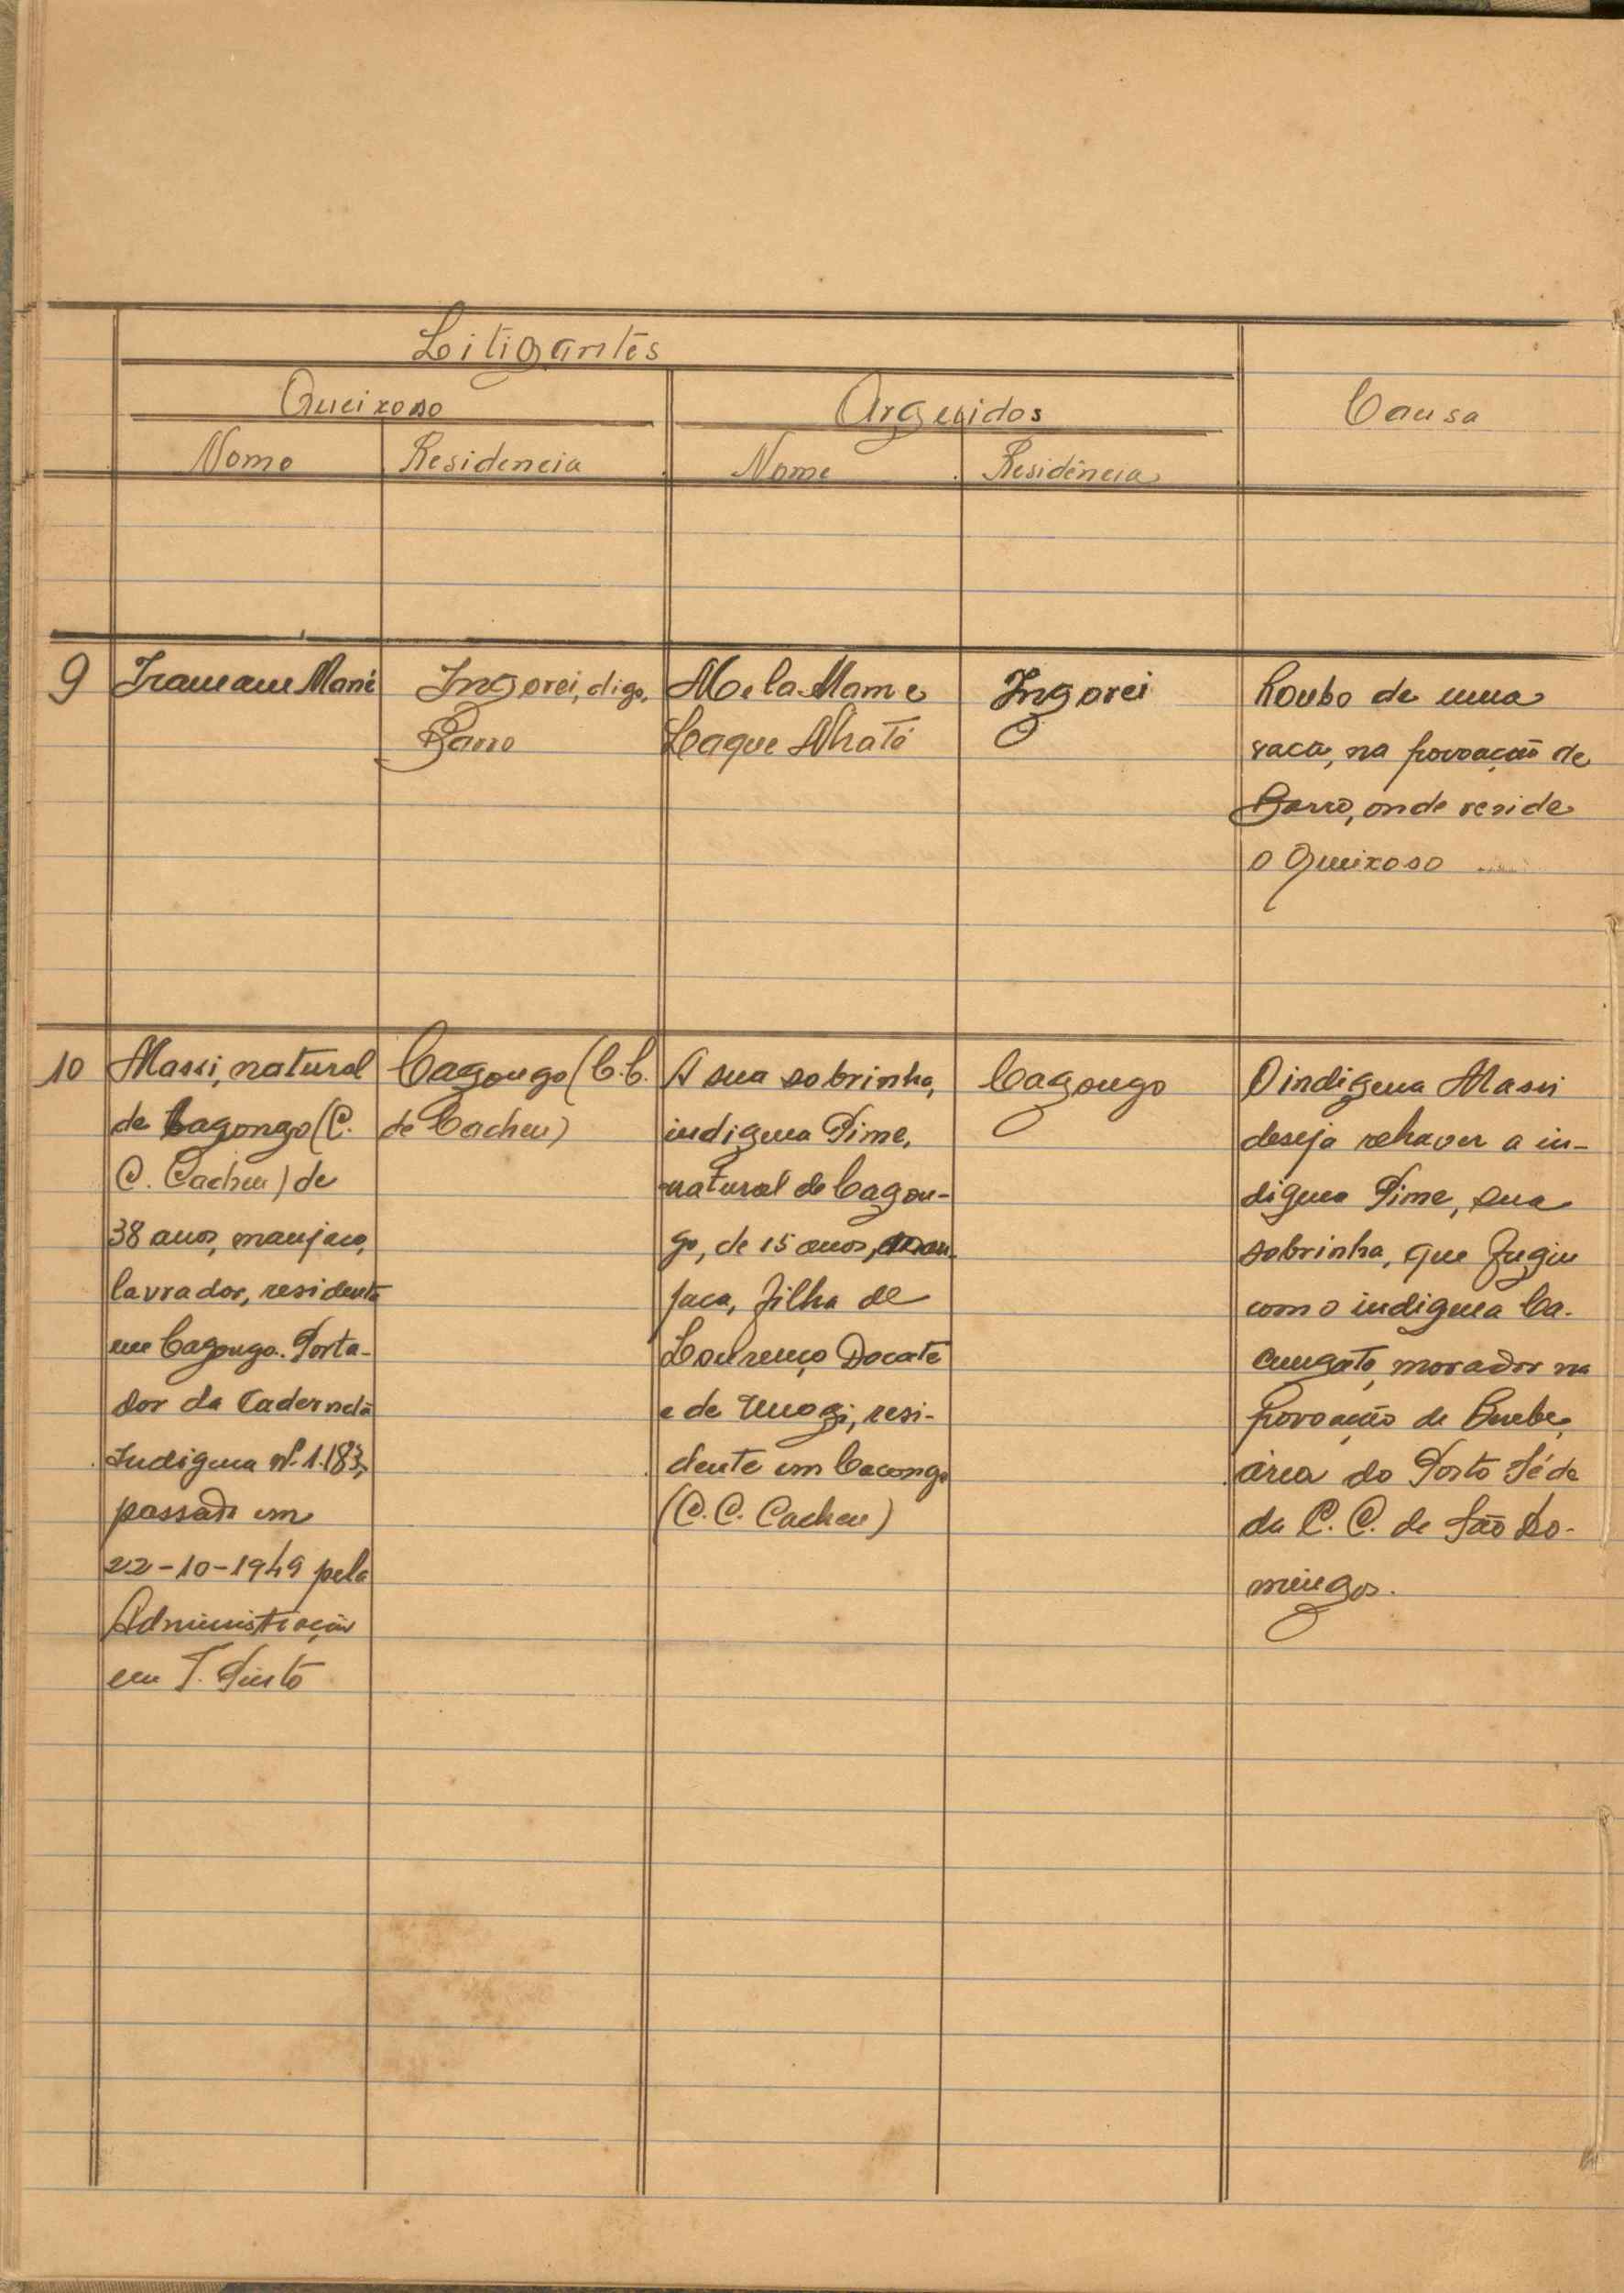 Litigantes
Queixoso
Arguidos
Causa
Nome
Residencia
Nome
Residência
9
Mané
Ingorei, digo,
Barro
Mela Mam e
Laque Nhaté
Ingorei
Roubo de uma
vaca, na povoação de
Barro, onde reside
o Queixoso
10
Massi, natural
de Cagongo (C.
C. Cacheu) de
38 anos, manjaco,
lavrador, residente
em Cagongo. Porta-
dor da Caderneta
Indigena Nº 1.183,
passada em
22-10-1949 pela
Administração
em T. Pinto
Cagongo (C.C.
de Cacheu)
A sua sobrinha,
indigena Pime,
natural de Cagon-
go, de 15 anos, man-
jaca, filha de
Lourenço Docate
e de resi-
dente em Cacongo
(C.C. Cacheu)
Cagongo
O indigena Massi
deseja rehaver a in-
digena Pime, sua
sobrinha, que fugiu
com o indigena Ca-
morador na
Povoação de
área do Posto Séde
da C. C. de São Do-
mingos.